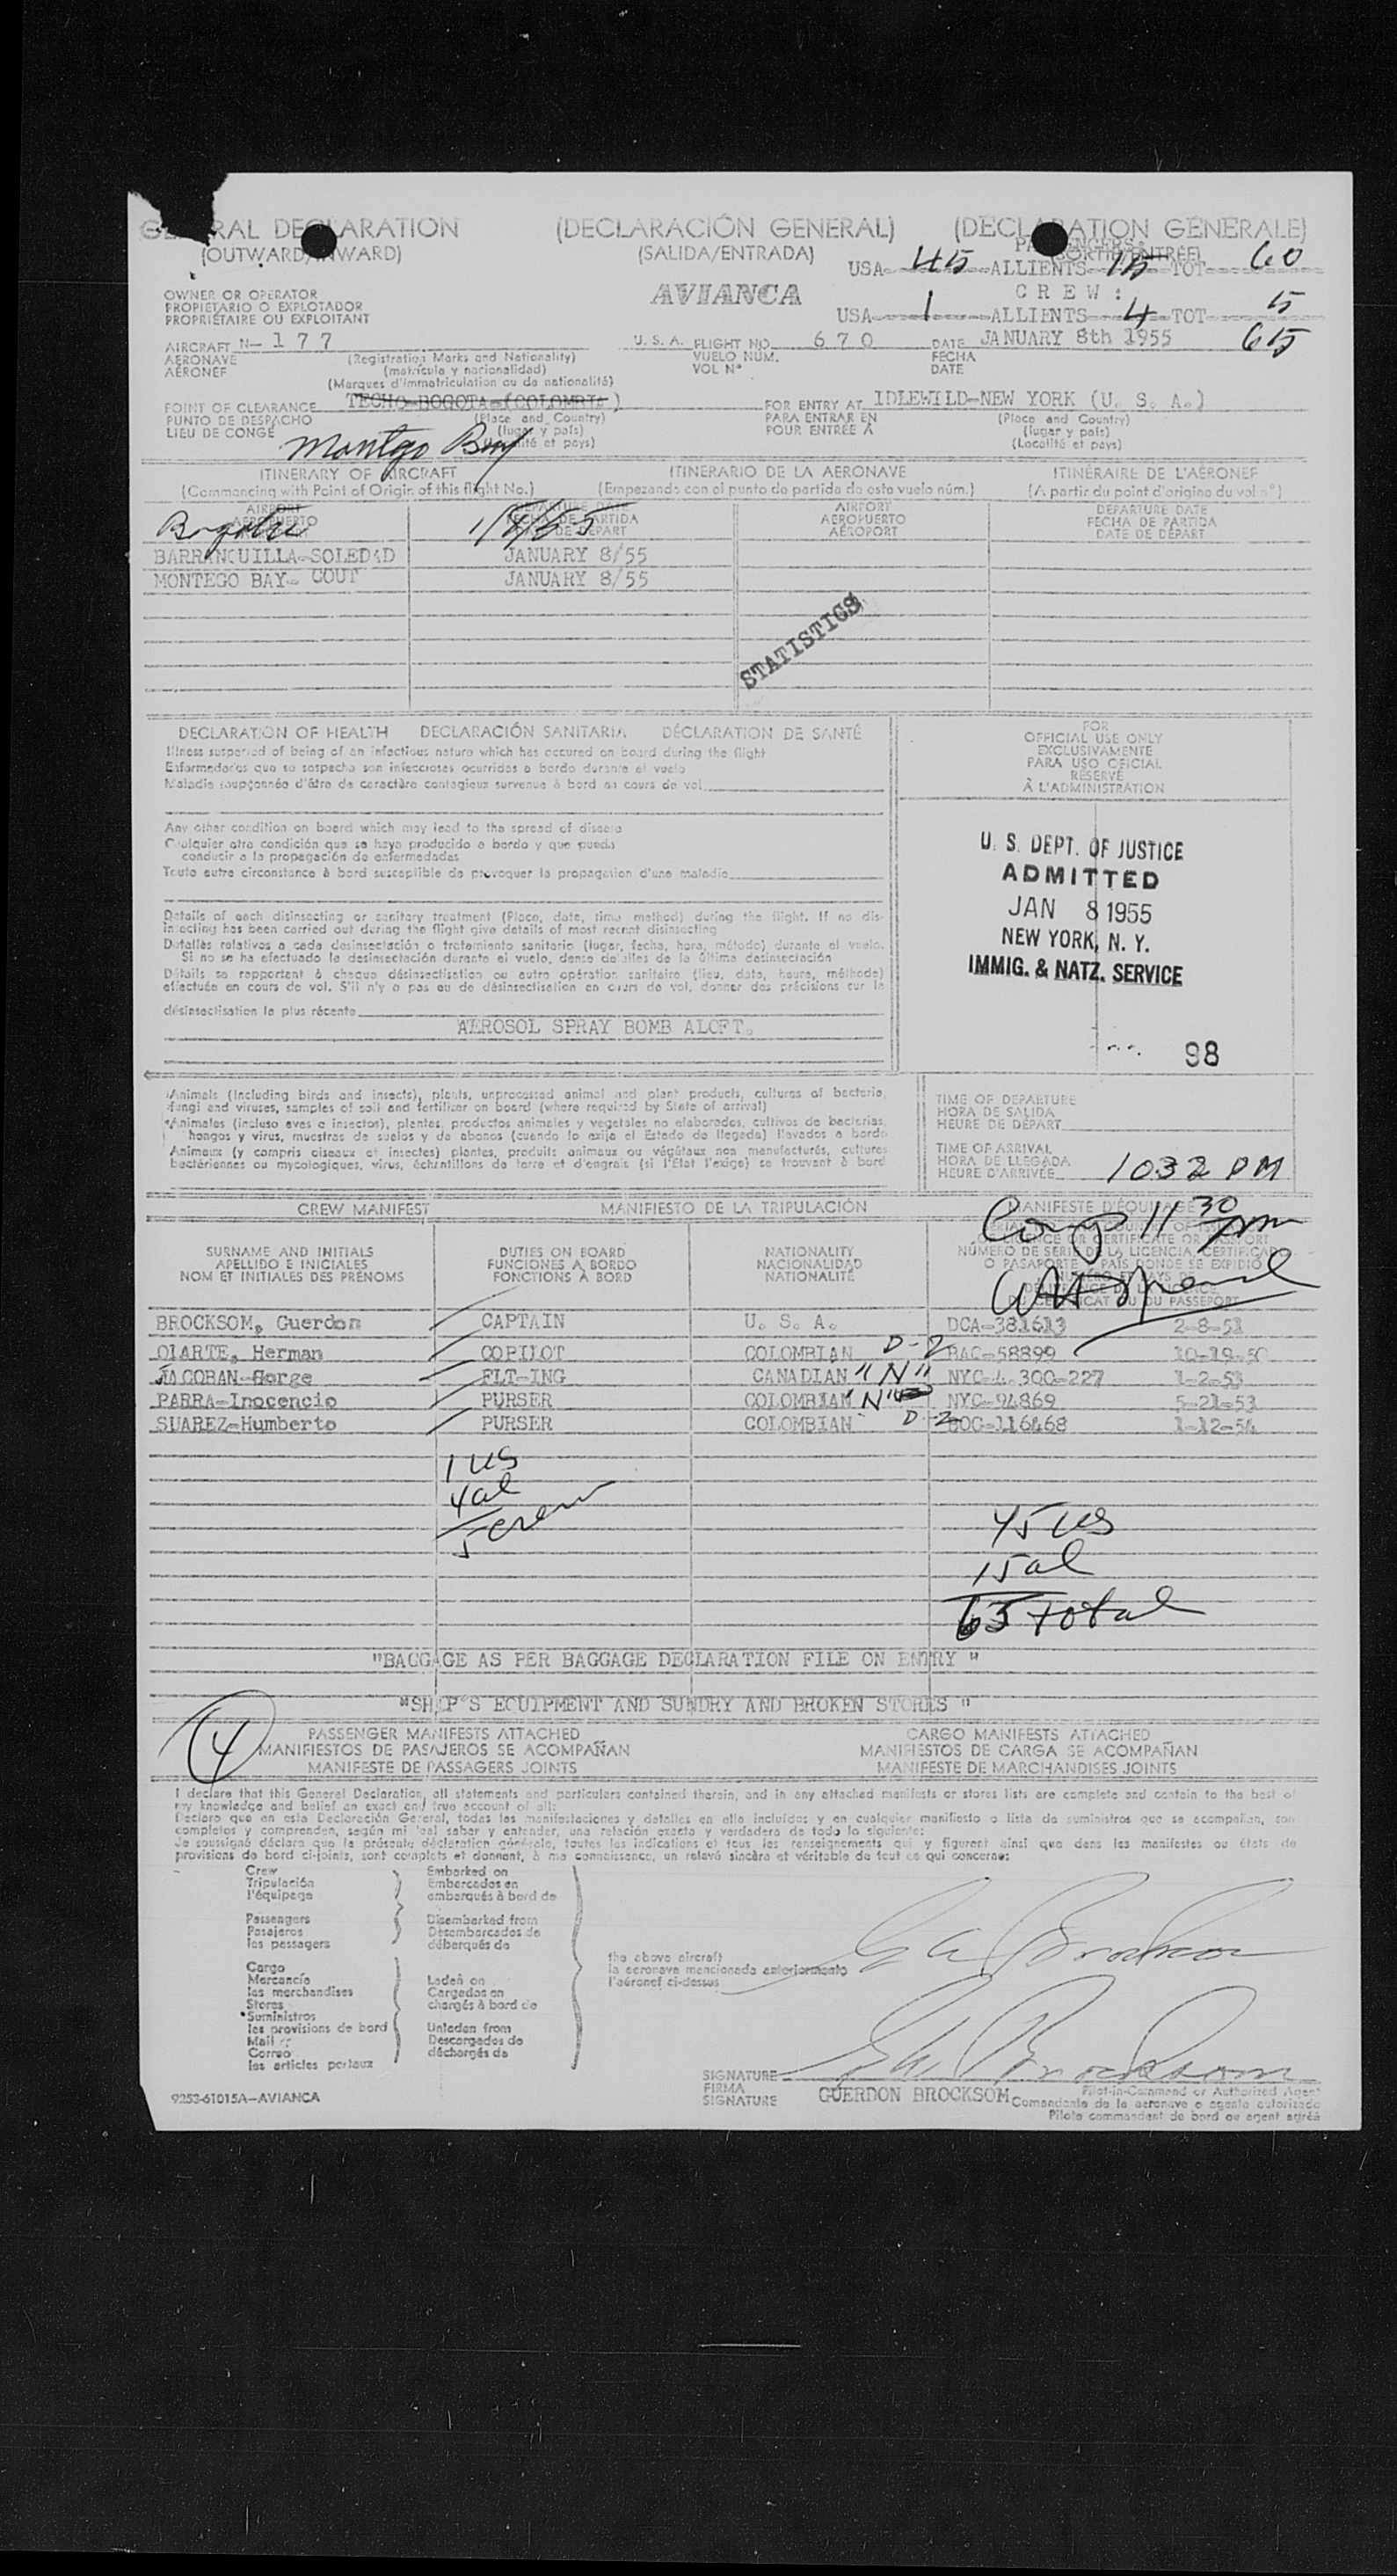 GENERAL DECLARATION (DECLARACIÓN GENERAL) (DECLARATION GÉNÉRALE)
(OUTWARD/INWARD) (SALIDA/ENTRADA) (SORTIE/ENTRÉE)
PASSENGERS:
USA 45 ALLIENTS 15 TOT 60
OWNER OR OPERATOR
PROPIETARIO O EXPLOTADOR
PROPRIÉTAIRE OU EXPLOITANT
AVIANCA
CREW:
USA 1 ALLIENTS 4 TOT 5
65
AIRCRAFT N-177 U.S.A. FLIGHT NO. 670 DATE JANUARY 8th 1955
AERONAVE (Registration Marks and Nationality) VUELO NÚM. FECHA
AÉRONEF (matrícula y nacionalidad) VOL Nº DATE
(Marques d'immatriculation ou de nationalité)
POINT OF CLEARANCE TECHO-BOGOTA-(COLOMBIA) FOR ENTRY AT IDLEWILD-NEW YORK (U. S. A.)
PUNTO DE DESPACHO (Place and Country) PARA ENTRAR EN (Place and Country)
LIEU DE CONGÉ (lugar y país) POUR ENTRÉE À (lugar y país)
Montgo Bay (Localité et pays) (Localité et pays)
ITINERARY OF AIRCRAFT ITINERARIO DE LA AERONAVE ITINÉRAIRE DE L'AÉRONEF
(Commencing with Point of Origin of this flight No.) (Empezando con el punto de partida de este vuelo núm.) (A partir du point d'origine du vol nº)
AIRPORT DEPARTURE DATE AIRPORT DEPARTURE DATE
AEROPUERTO FECHA DE PARTIDA AEROPUERTO FECHA DE PARTIDA
AÉROPORT DATE DE DÉPART AÉROPORT DATE DE DÉPART
Bogota 1/8/55
BARRANQUILLA-SOLEDAD JANUARY 8/55
MONTEGO BAY- COUT JANUARY 8/55
STATISTICS
DECLARATION OF HEALTH DECLARACIÓN SANITARIA DÉCLARATION DE SANTÉ
Illness suspected of being of an infectious nature which has occured on board during the flight
Enfermedades que se sospecha son infecciosas ocurridas a bordo durante el vuelo
Maladie soupçonnée d'être de caractère contagieux survenue à bord en cours de vol
Any other condition on board which may lead to the spread of disease
Cualquier otra condición que se haya producido a bordo y que pueda
conducir a la propagación de enfermedades
Toute autre circonstance à bord susceptible de provoquer la propagation d'une maladie
Details of each disinsecting or sanitary treatment (Place, date, time method) during the flight. If no dis-
insecting has been carried out during the flight give details of most recent disinsecting
Detalles relativos a cada desinsectación o tratamiento sanitario (lugar, fecha, hora, método) durante el vuelo.
Si no se ha efectuado la desinsectación durante el vuelo, dense detalles de la última desinsectación
Détails se rapportant à chaque désinsectisation ou autre opération sanitaire (lieu, date, heure, méthode)
effectuée en cours de vol. S'il n'y a pas eu de désinsectisation en cours de vol, donner des précisions sur la
désinsectisation la plus récente
AEROSOL SPRAY BOMB ALOFT.
FOR
OFFICIAL USE ONLY
EXCLUSIVAMENTE
PARA USO OFICIAL
RÉSERVÉ
À L'ADMINISTRATION
U. S. DEPT. OF JUSTICE
ADMITTED
JAN 8 1955
NEW YORK, N. Y.
IMMIG. & NATZ. SERVICE
98
Animals (including birds and insects), plants, unprocessed animal and plant products, cultures of bacteria,
fungi and viruses, samples of soil and fertilizer on board (where required by State of arrival)
Animales (incluso aves e insectos), plantas, productos animales y vegetales no elaborados, cultivos de bacterias,
hongos y virus, muestras de suelos y de abonos (cuando lo exija el Estado de llegada) llevados a bordo
Animaux (y compris oiseaux et insectes) plantes, produits animaux ou végétaux non manufacturés, cultures
bactériennes ou mycologiques, virus, échantillons de terre et d'engrais (si l'État l'exige) se trouvant à bord
TIME OF DEPARTURE
HORA DE SALIDA
HEURE DE DÉPART
TIME OF ARRIVAL
HORA DE LLEGADA
HEURE D'ARRIVÉE 1032 PM
CREW MANIFEST MANIFIESTO DE LA TRIPULACIÓN MANIFESTE D'ÉQUIPAGE
11 30 pm
SURNAME AND INITIALS DUTIES ON BOARD NATIONALITY
APELLIDO E INICIALES FUNCIONES A BORDO NACIONALIDAD NÚMERO DE SERIE DE LA LICENCIA, CERTIFICADO
NOM ET INITIALES DES PRÉNOMS FONCTIONS À BORD NATIONALITÉ O PASAPORTE Y PAÍS DONDE SE EXPIDIÓ
BROCKSOM, Guerdon CAPTAIN U. S. A. DCA-381613 2-8-51
OLARTE, Herman COPILOT COLOMBIAN D-2 BAC-58899 10-19-50
JACOBAN-Gorge FLT-ING CANADIAN "N" NYC-4.300-227 1-2-53
PARRA-Inocencio PURSER COLOMBIAN "N" NYC-94869 5-21-53
SUAREZ-Humberto PURSER COLOMBIAN D-2 BOG-116468 1-12-54
1 US
4 al
5 crew
45 US
15 al
65 total
"BAGGAGE AS PER BAGGAGE DECLARATION FILE ON ENTRY "
"SHIP'S EQUIPMENT AND SUNDRY AND BROKEN STORES "
4
PASSENGER MANIFESTS ATTACHED CARGO MANIFESTS ATTACHED
MANIFIESTOS DE PASAJEROS SE ACOMPAÑAN MANIFIESTOS DE CARGA SE ACOMPAÑAN
MANIFESTE DE PASSAGERS JOINTS MANIFESTE DE MARCHANDISES JOINTS
I declare that this General Declaration, all statements and particulars contained therein, and in any attached manifests or stores lists are complete and contain to the best of
my knowledge and belief an exact and true account of all:
Declaro que en esta Declaración General, todas las manifestaciones y detalles en ella incluídos y en cualquier manifiesto o lista de suministros que se acompañan, son
completos y comprenden, según mi leal saber y entender, una relación exacta y verdadera de todo lo siguiente:
Je soussigné déclare que la présente déclaration générale, toutes les indications et tous les renseignements qui y figurent ainsi que dans les manifestes ou états de
provisions de bord ci-joints, sont complets et donnent, à ma connaissance, un relevé sincère et véritable de tout ce qui concerne:
Crew Embarked on
Tripulación Embarcados en
l'équipage embarqués à bord de
Passengers Disembarked from
Pasajeros Desembarcados de
les passagers débarqués de
the above aircraft
la aeronave mencionada anteriormente
l'aéronef ci-dessus
Cargo
Mercancía Laden on
les marchandises Cargados en
Stores chargés à bord de
Suministros
les provisions de bord Unladen from
Mail Descargados de
Correo déchargés de
les articles postaux
G W Brocksom
G W Brocksom
SIGNATURE
FIRMA
SIGNATURE
GUERDON BROCKSOM
Pilot-in-Command or Authorized Agent
Comandante de la aeronave o agente autorizado
Pilote commandant de bord ou agent agréé
9253-61015A-AVIANCA